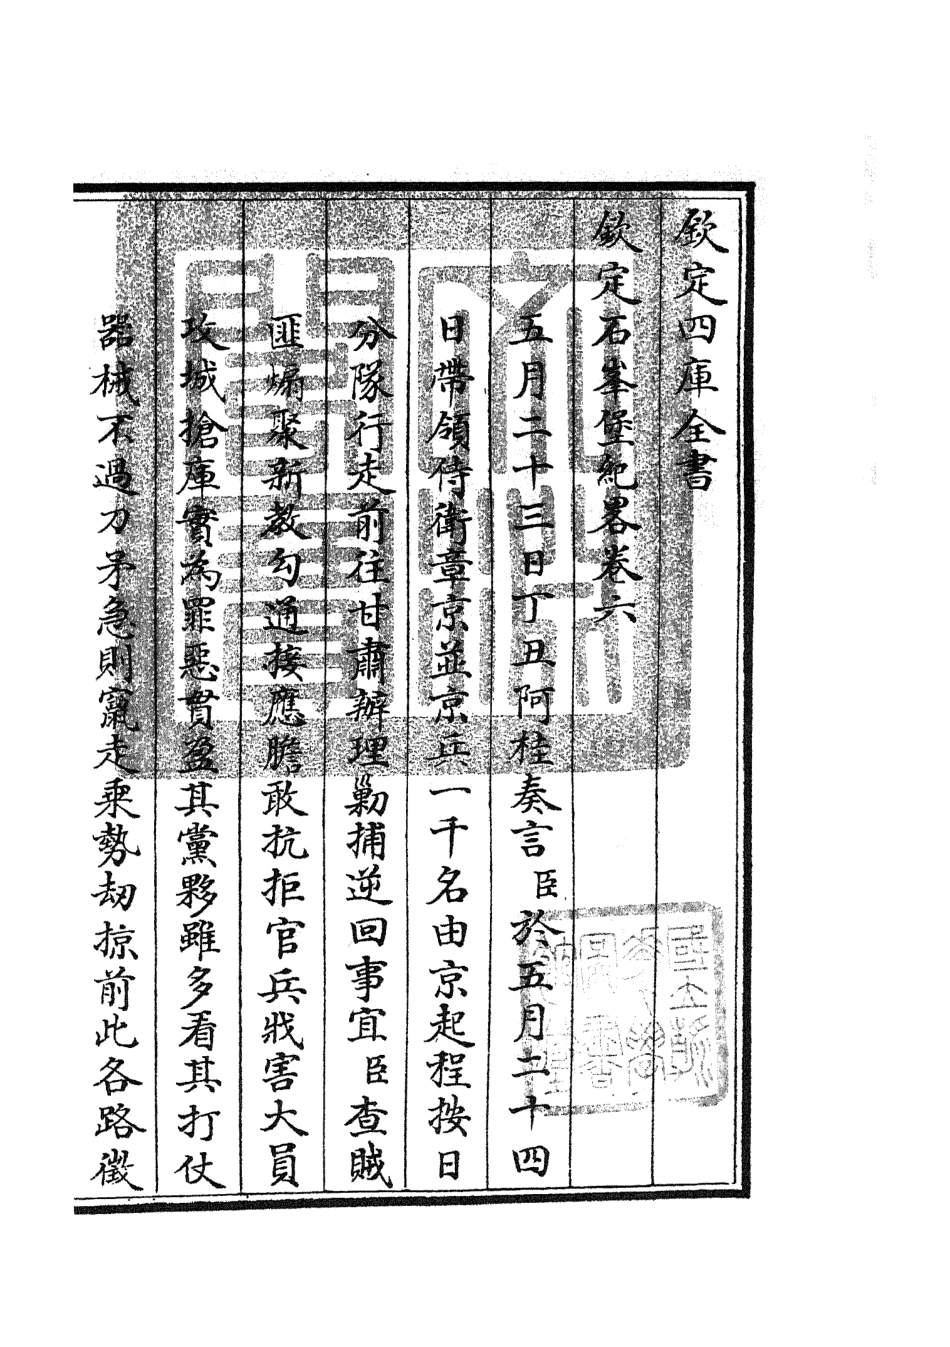 欽定四庫全書
欽定石峯堡紀畧卷六
五月二十三日丁丑阿桂奏言臣於五月二十四
日帶領侍衛章京並京兵一千名由京起程按日
分隊行走前往甘肅辦理勦捕逆回事宜臣查賊
匪煽聚新教勾通接應膽敢抗拒官兵戕害大員
攻城搶庫實為罪惡貫盈其黨夥雖多看其打仗
器械不過刀矛急則竄走乘勢刧掠前此各路徵